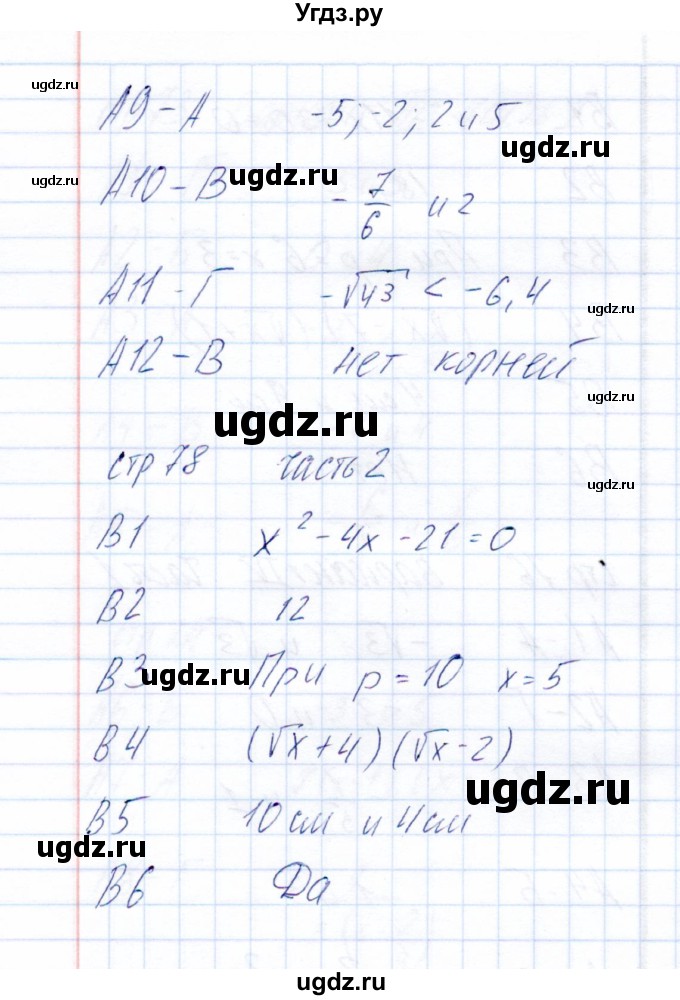 Угдз.ру
ugdz.ru
А9 - А -5; -2; 2 и 5
ugdz.ru
ugdz.ru
ugdz.ru
А10 - В - 7/6 и 2
А11 - Г -√43 < -6,4
ugdz.ru
А12 - В нет корней
ugdz.ru
ugdz.ru
стр 78 часть 2
ugdz.ru
В1 x² - 4x - 21 = 0
В2 12
В3 При p = 10 x = 5
ugdz.ru
В4 (√x + 4) (√x - 2)
ugdz.ru
В5 10 см и 4 см
ugdz.ru
В6 Да
ugdz.ru